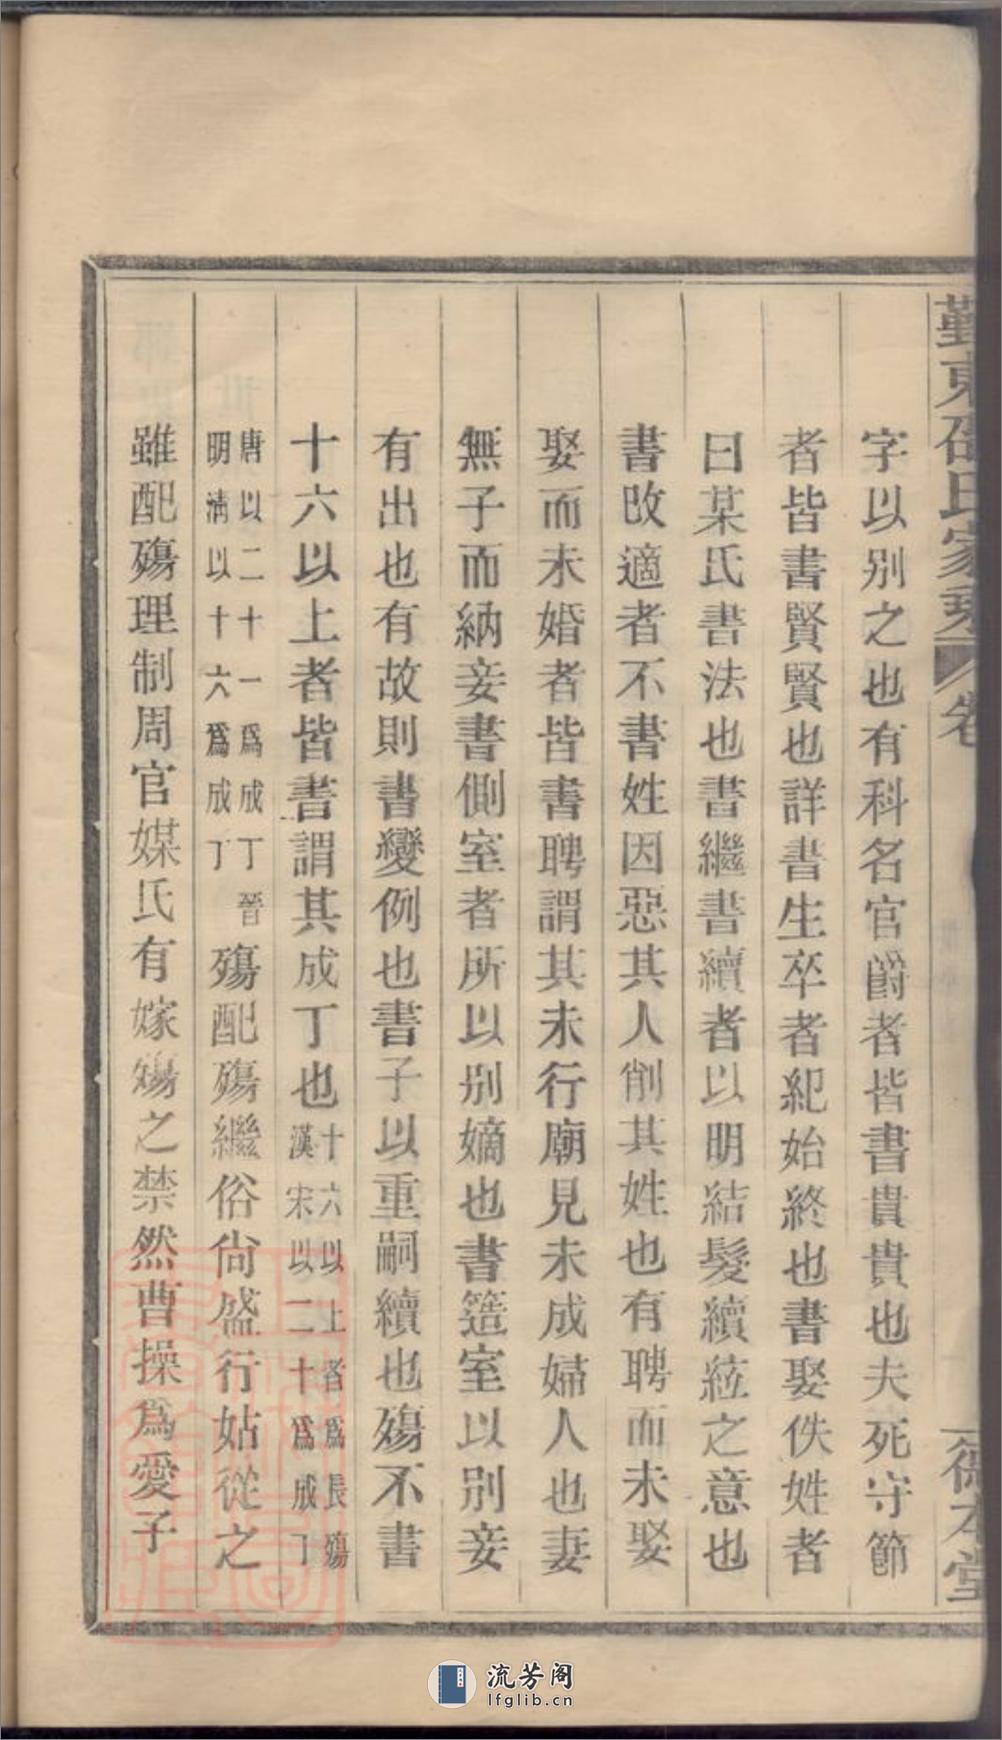 鄞東邵氏家乘 卷
德本堂
字以别之也有科名官爵者皆書貴貴也夫死守節
者皆書賢賢也詳書生卒者紀始終也書娶佚姓者
曰某氏書法也書繼書續者以明結髮續絃之意也
書改適者不書姓因惡其人削其姓也有聘而未娶
娶而未婚者皆書聘謂其未行廟見未成婦人也妻
無子而納妾書側室者所以别嫡也書簉室以别妾
有出也有故則書變例也書子以重嗣續也殤不書
十六以上者皆書謂其成丁也十六以上者爲長殤漢宋以二十爲成丁
唐以二十一爲成丁晉明淸以十六爲成丁殤配殤繼俗尙盛行姑從之
雖配殤理制周官媒氏有嫁殤之禁然曹操爲愛子
流芳阁
lfglib.cn